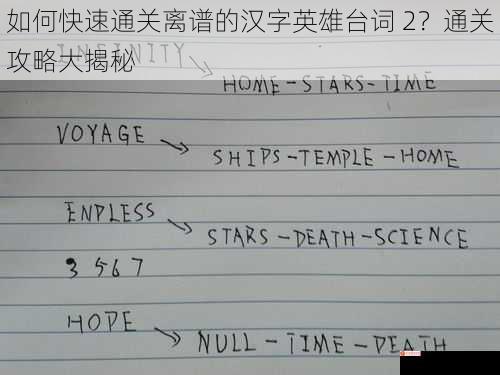 如何快速通关离谱的汉字英雄台词 2？通关
攻略大揭秘
INFINITY
HOME-STARS-TIME
VOYAGE
SHIPS-TEMPLE-HOME
ENDLESS
STARS-DEATH-SCIENCE
3 5 6 7
HOPE
NULL-TIME-DEATH